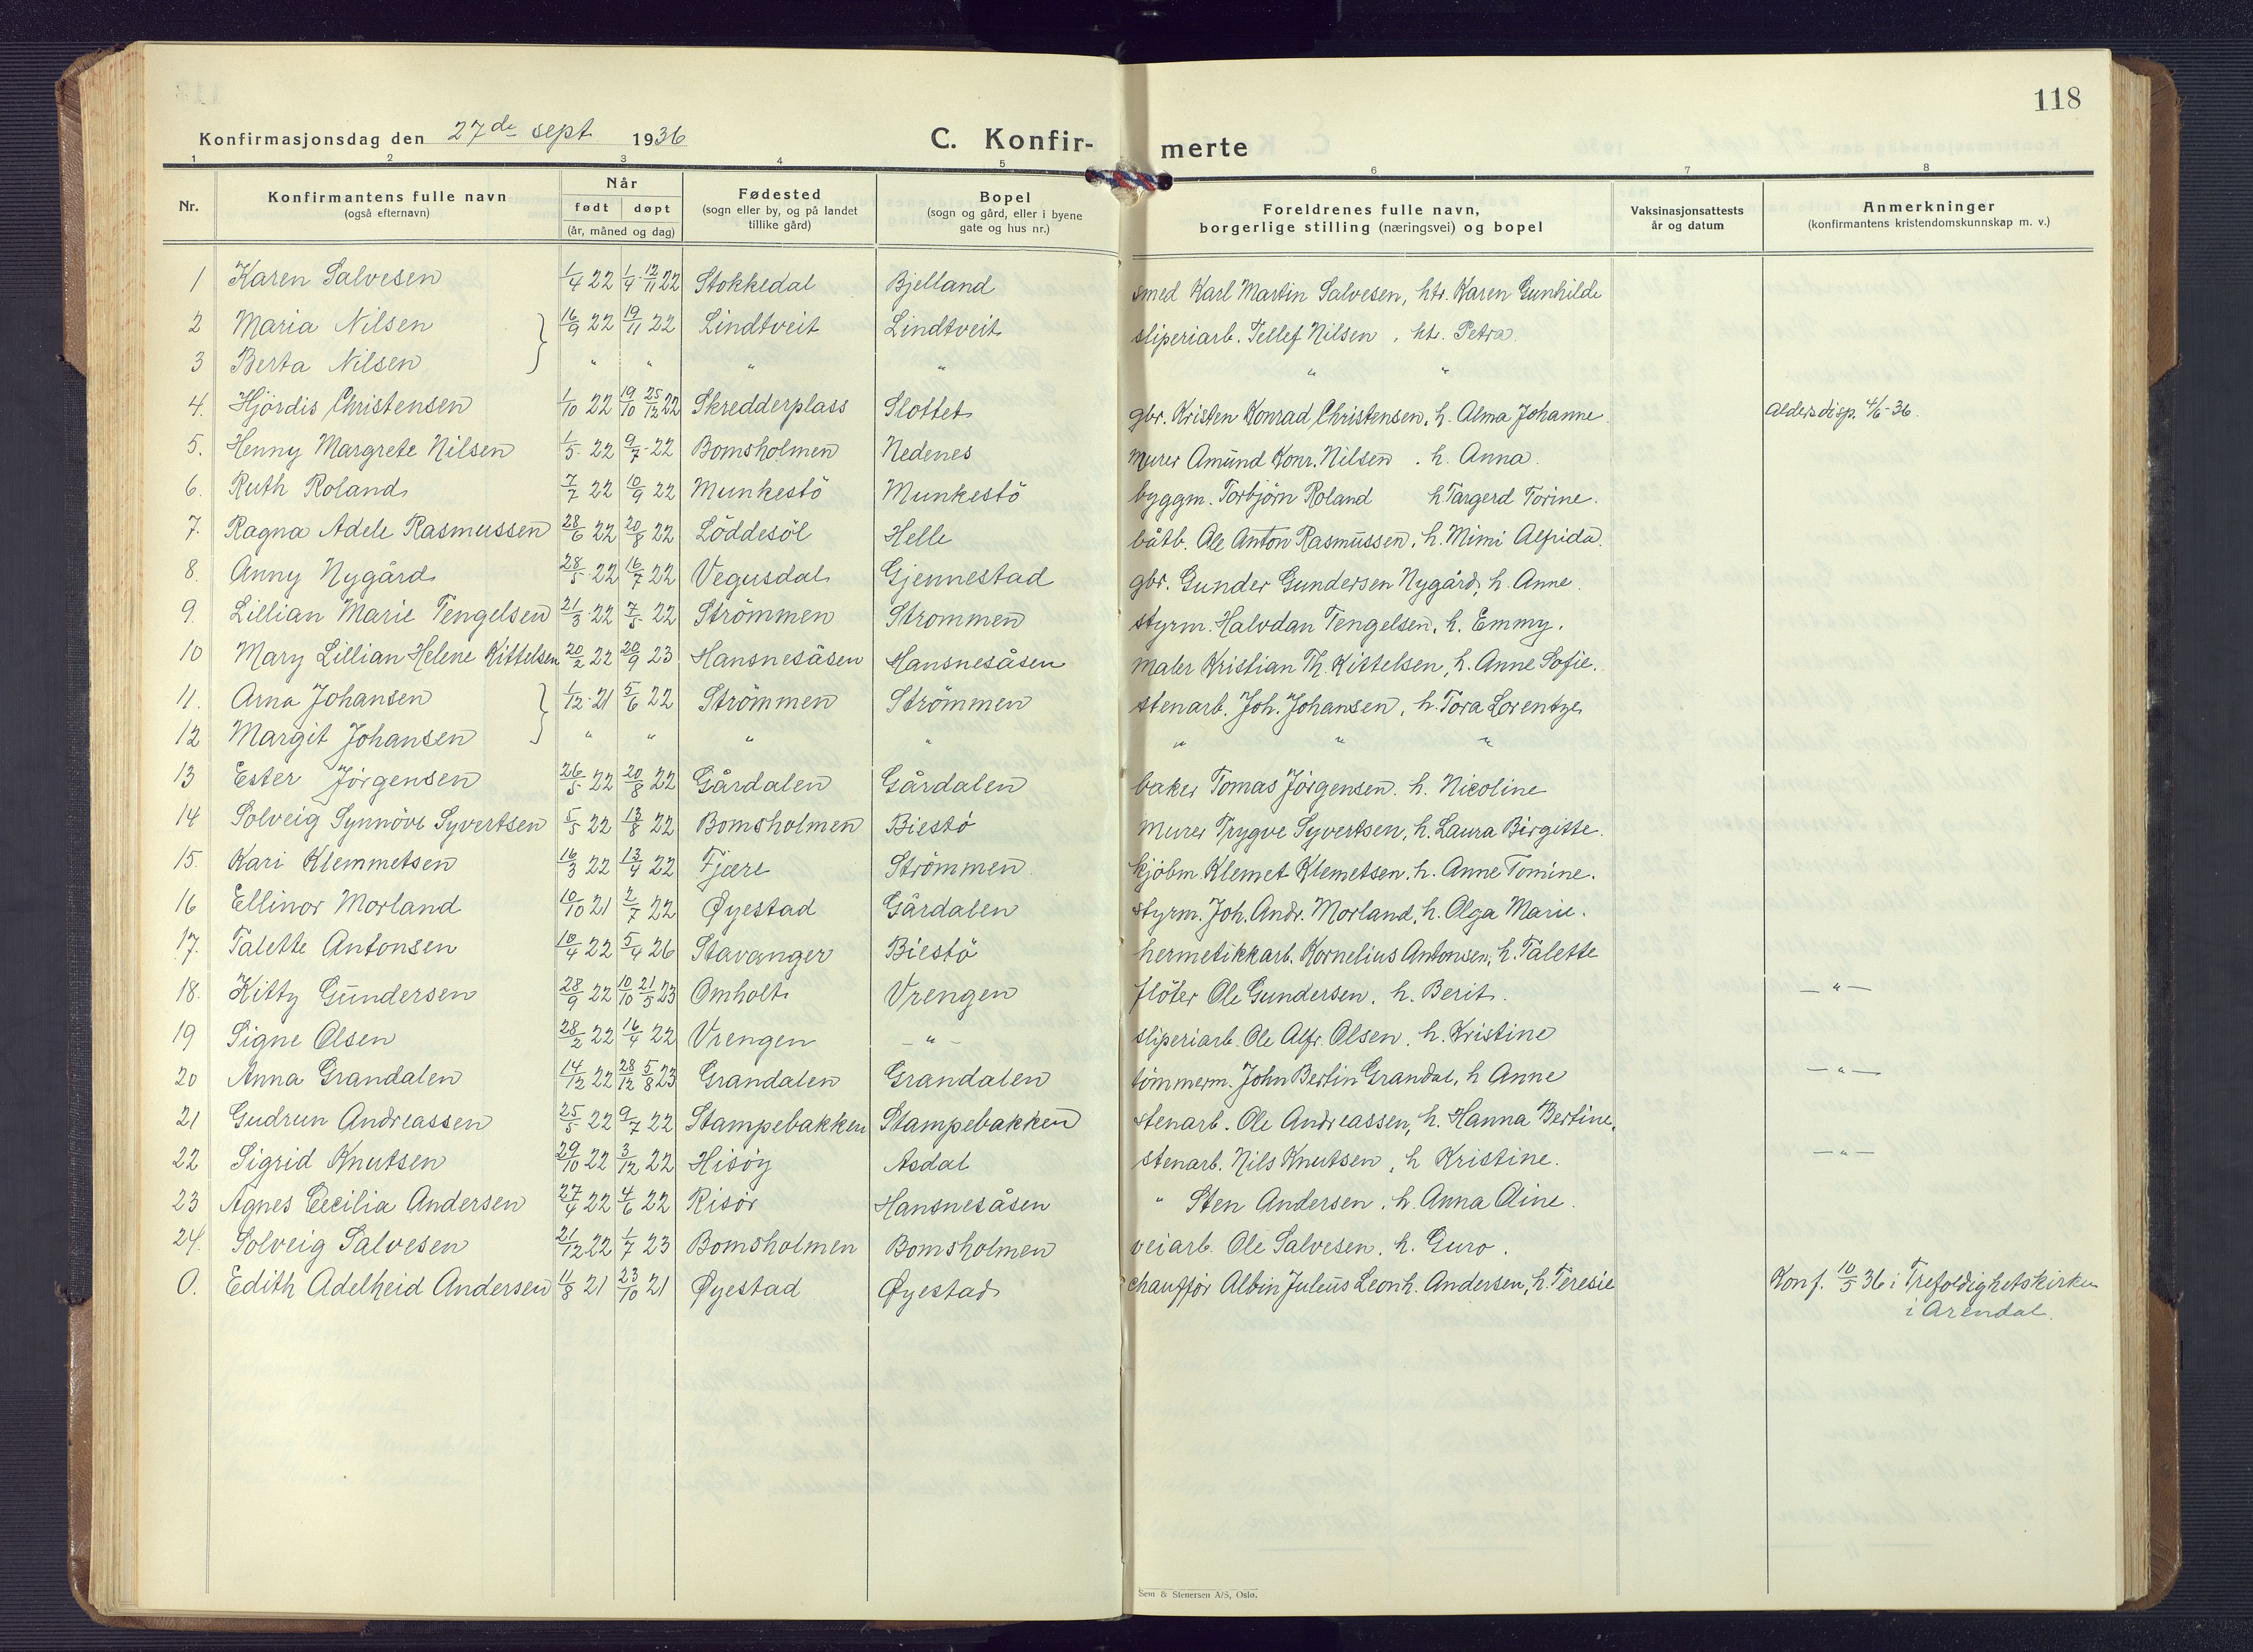 118
Konfirmasjonsdag den 27de sept. 1936 C. Konfir- merte
1 2 3 4 5 6 7 8
Nr. Konfirmantens fulle navn (også efternavn) Når født døpt (år, måned og dag) Fødested (sogn eller by, og på landet tillike gård) Bopel (sogn og gård, eller i byene gate og hus nr.) Foreldrenes fulle navn, borgerlige stilling (næringsvei) og bopel Vaksinasjonsattests år og datum Anmerkninger (konfirmantens kristendomskunnskap m. v.)
1 Karen Salvesen 1/4 22 1/4 - 12/11 22 Stokkedal Bjelland smed Karl Martin Salvesen, htr. Karen Gunhilde
2 Maria Nilsen } 16/9 22 19/11 22 Lindtveit Lindtveit sliperiarb. Tellef Nilsen, htr. Petra.
3 Berta Nilsen " " " " " "
4. Hjördis Christensen 1/10 22 19/10 25/12 22 Skredderplass Slottet gbr. Kristen Konrad Christensen, h. Alma Johanne Aldersdisp. 4/6-36.
5. Henny Margrete Nilsen 1/5 22 9/7 22 Bomsholmen Nedenes Murer Amund Konr. Nilsen, h. Anna.
6. Ruth Roland 7/7 22 10/9 22 Munkestö Munkestö byggm. Torbjörn Roland h Targerd Torine.
7. Ragna Adele Rasmussen 28/6 22 20/8 22 Löddesöl Helle båtb. Ole Anton Rasmussen, h. Mimi Alfrida.
8. Anny Nygård 28/5 22 16/7 22 Vegusdal Gjennestad gbr. Gunder Gundersen Nygård, h. Anne.
9. Lillian Marie Tengelsen 21/3 22 7/5 22 Strömmen Strommen styrm. Halvdan Tengelsen, h. Emmy.
10 Mary Lillian Helene Kittelsen 20/2 22 20/9 23 Hansnesåsen Hansnesåsen Maler Kristian Th. Kittelsen, h. Anne Sofie.
11. Arna Johansen } 1/12 21 5/6 22 Strömmen Strömmen stenarb. Joh. Johansen, h. Tora Lorentze
12 Margit Johansen " " " " " " "
13 Ester Jörgensen 26/5 22 20/8 22 Gårdalen Gårdalen baker Tomas Jörgensen. h. Nicoline
14 Solveig Synnöve Syvertsen 5/5 22 13/8 22 Bomsholmen Biestö Murer Trygve Syvertsen, h. Laura Birgitte.
15. Kari Klemmetsen 16/3 22 13/4 22 Fjære Strömmen kjöbm. Klemet Klemetsen. h. Anne Tomine.
16 Ellinor Morland 10/10 21 2/7 22 Øyestad Gårdalen styrm. Joh. Andr. Morland, h. Olga Marie.
17. Talette Antonsen 10/4 22 5/4 26 Stavanger Biestö hermetikkarb. Kornelius Antonsen, h. Talette
18. Kitty Gundersen 28/9 22 10/10 21/5 23 Omholt Vrengen flöter Ole Gundersen, h. Berit. — " —
19 Signe Olsen 28/2 22 16/4 22 Vrengen — " — sliperiarb. Ole Alfr. Olsen, h. Kristine
20 Anna Grandalen 14/12 22 28/12 5/8 23 Grandalen Grandalen tömmerm. John Bertin Grandal, h Anne — " —
21 Gudrun Andreassen 25/5 22 9/7 22 Stampebakken Stampebakken stenarb. Ole Andreassen, h. Hanna Bertine.
22 Sigrid Knutsen 29/10 22 3/12 22 Hisöy Asdal stenarb. Nils Knutsen, h Kristine. — " —
23 Agnes Cecilia Andersen 27/4 22 4/6 22 Risör Hansnesåsen " Sten Andersen, h. Anna Oline.
24. Solveig Salvesen 21/12 22 1/7 23 Bomsholmen Bomsholmen veiarb. Ole Salvesen, h. Guro.
0. Edith Adelheid Andersen 11/8 21 23/10 21 Øyestad Øyestad chaufför Albin Julius Leonh. Andersen, h. Teresie Konf. 10/5 36 i Trefoldighetskirken
i Arendal.
Sem & Stenersen A/S, Oslo.